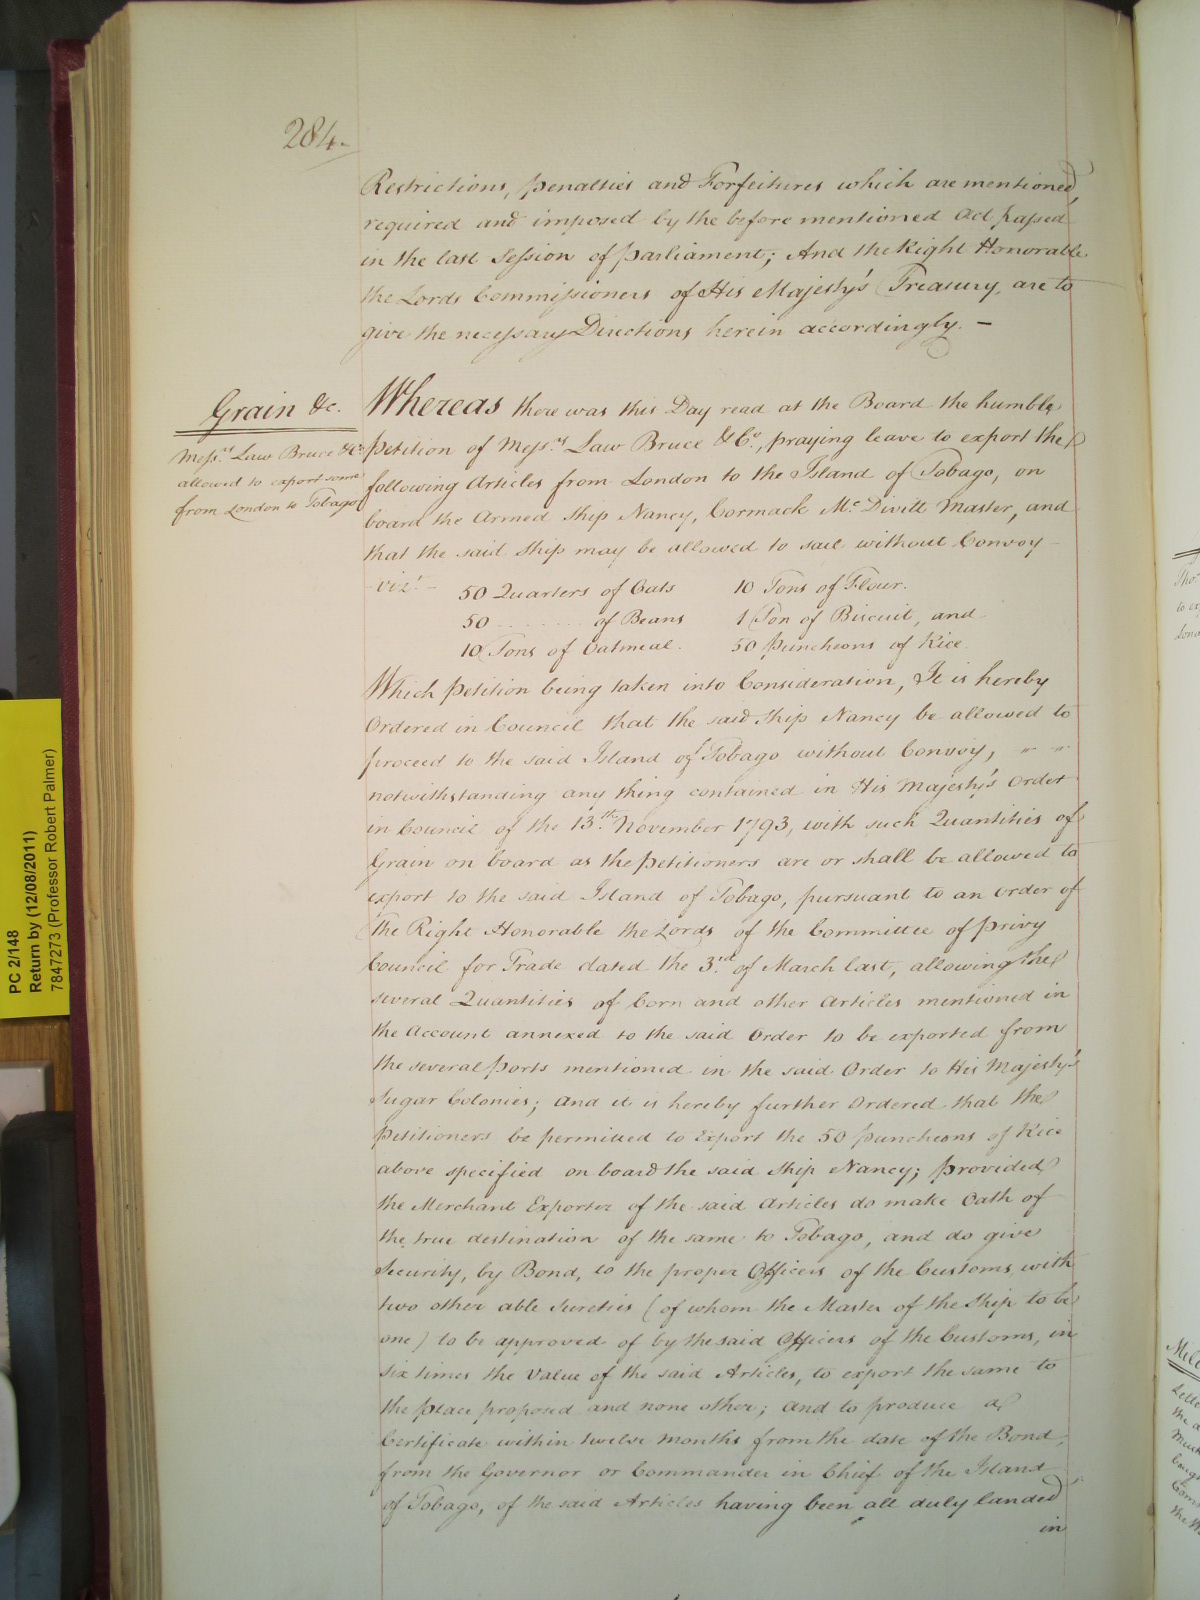 284.
Restrictions, penalties and Forfeitures which are mentioned,
required and imposed by the before mentioned Act passed
in the last Session of Parliament; And the Right Honorable
the Lords Commissioners of His Majesty's Treasury, are to
give the necessary Directions herein accordingly. —
Grain &c.
Mess.rs Law Bruce & Co.
allowed to export some
from London to Tobago
Whereas there was this Day read at the Board the humble
Petition of Mess.rs Law Bruce & Co., praying leave to export the
following Articles from London to the Island of Tobago, on
board the Armed Ship Nancy, Cormack Mc. Divitt Master, and
that the said Ship may be allowed to sail without Convoy —
— vizt. —
50 Quarters of Oats 10 Tons of Flour.
50 ........ of Beans 1 Ton of Biscuit, and
10 Tons of Oatmeal. 50 Puncheons of Rice
Which Petition being taken into Consideration, It is hereby
Ordered in Council that the said Ship Nancy be allowed to
proceed to the said Island of Tobago without Convoy, " "
notwithstanding any thing contained in His Majesty's Order
in Council of the 13.th November 1793, with such Quantities of
Grain on board as the Petitioners are or shall be allowed to
export to the said Island of Tobago, pursuant to an Order of
the Right Honorable the Lords of the Committee of Privy
Council for Trade dated the 3.rd of March last, allowing the
several Quantities of Corn and other Articles mentioned in
the Account annexed to the said Order to be exported from
the several Ports mentioned in the said Order to His Majesty's
Sugar Colonies; and it is hereby further Ordered that the
Petitioners be permitted to Export the 50 Puncheons of Rice
above specified on board the said Ship Nancy; provided
the Merchant Exporter of the said Articles do make Oath of
the true destination of the same to Tobago, and do give
Security, by Bond, to the proper Officers of the Customs with
two other able Sureties (of whom the Master of the Ship to be
one) to be approved of by the said Officers of the Customs, in
six times the Value of the said Articles, to export the same to
the place proposed and none other; and to produce a
Certificate within twelve months from the date of the Bond,
from the Governor or Commander in Chief of the Island
of Tobago, of the said Articles having been all duly landed
in
PC 2/148
Return by (12/08/2011)
7847273 (Professor Robert Palmer)